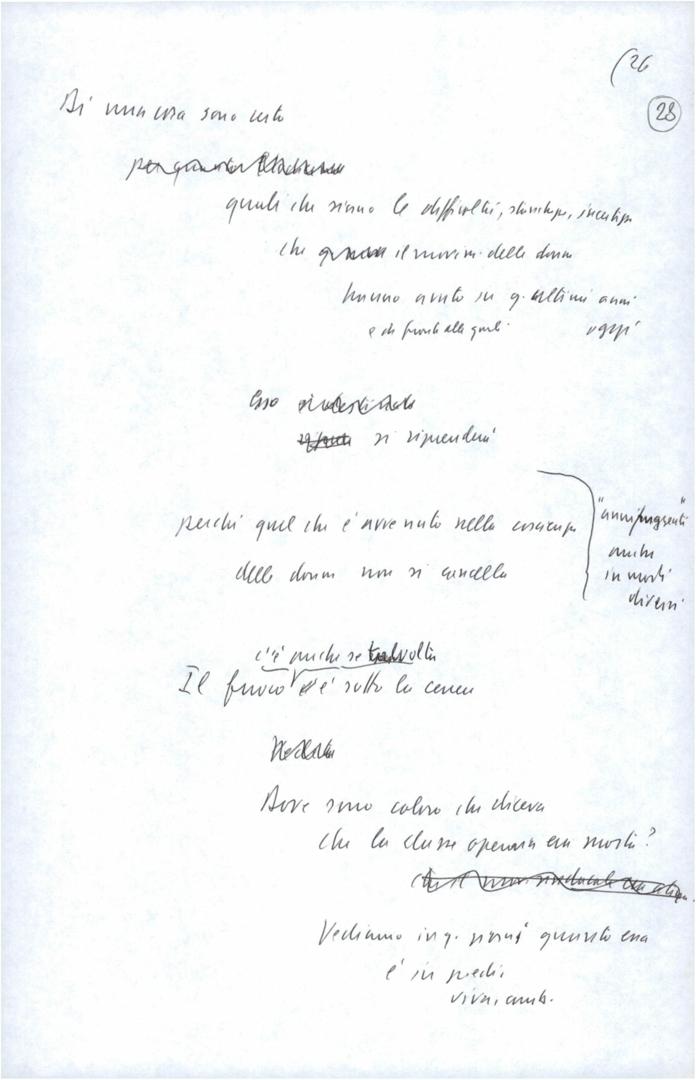 (26
28
Di una cosa sono certo
per quanto
quali che siano le difficoltà, stanchezze, incertezze
che il movim. delle donne
hanno avuto in q. ultimi anni
e di fronte alle quali oggi
Esso
si riprenderà
perché quel che è avvenuto nella coscienza
delle donne non si cancella
anche
in modi
diversi
c'è anche se talvolta
Il fuoco c'è sotto la cenere
Dove sono coloro che diceva
che la classe operaia era morta?
che il mov. sindacale era
Vediamo in q. giorni quanto essa
è in piedi,
viva, comb.